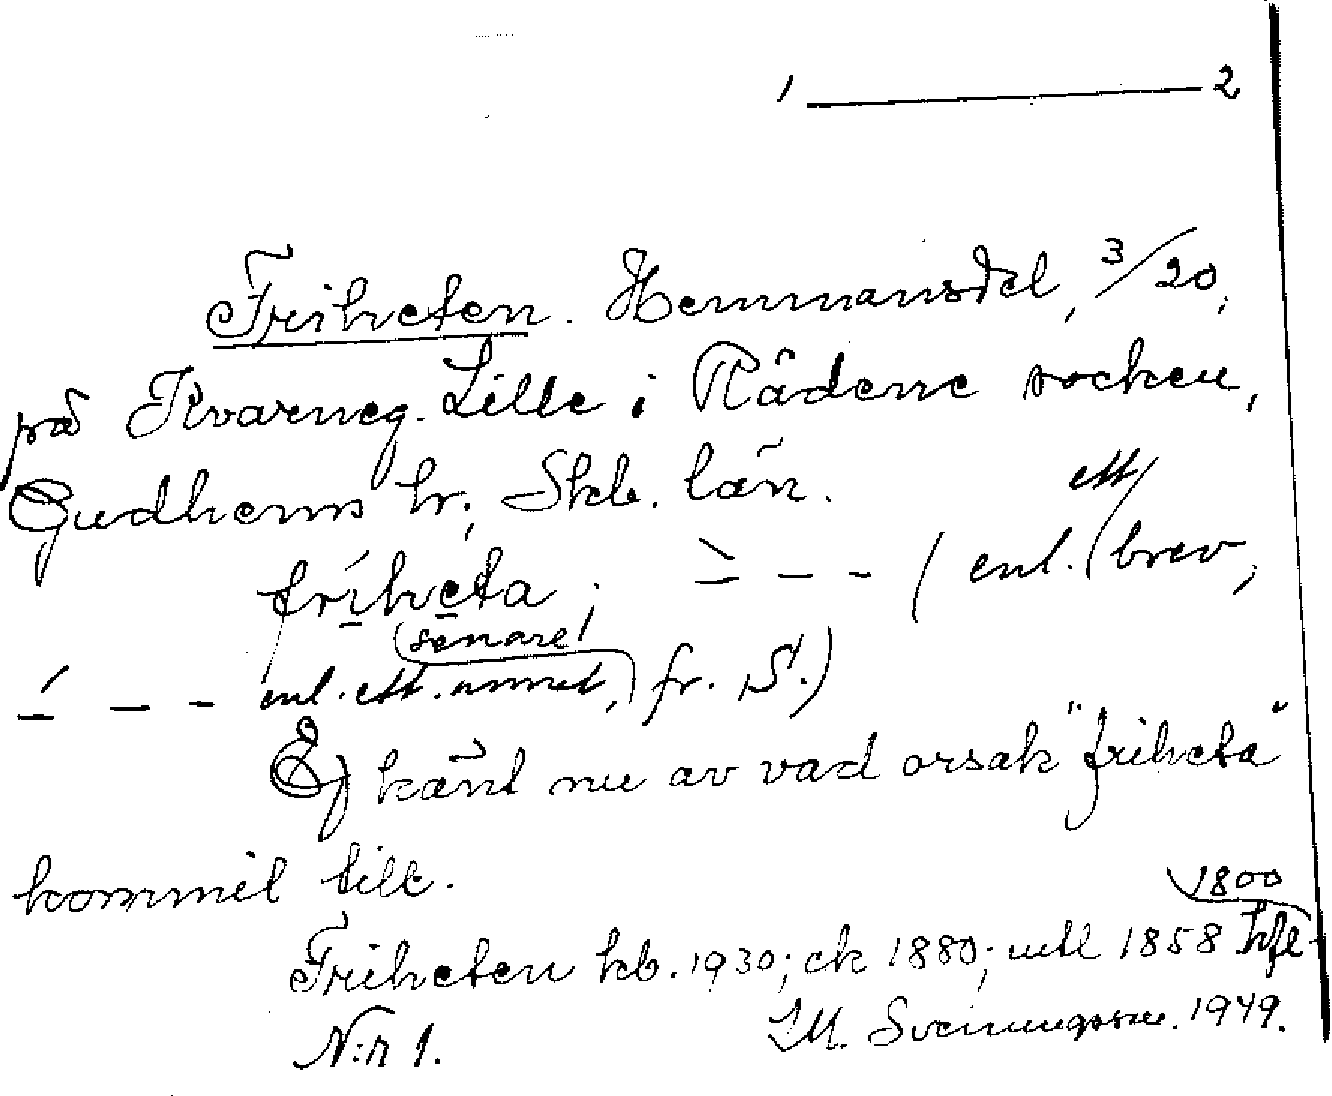 1 ——— 2
Friheten. Hemmansdel, 3/20,
på Kvarneg. Lille i Rådene socken,
Gudhems hr; Skb. län.
friheta; ` - - - ( enl. ett brev,
´ - - - enl. ett annat, senare, fr. S.)
Ej känt nu av vad orsak "friheta"
kommit till.
Friheten kb. 1930; ek 1880; utll 1858 1800
N:r 1. 1949.